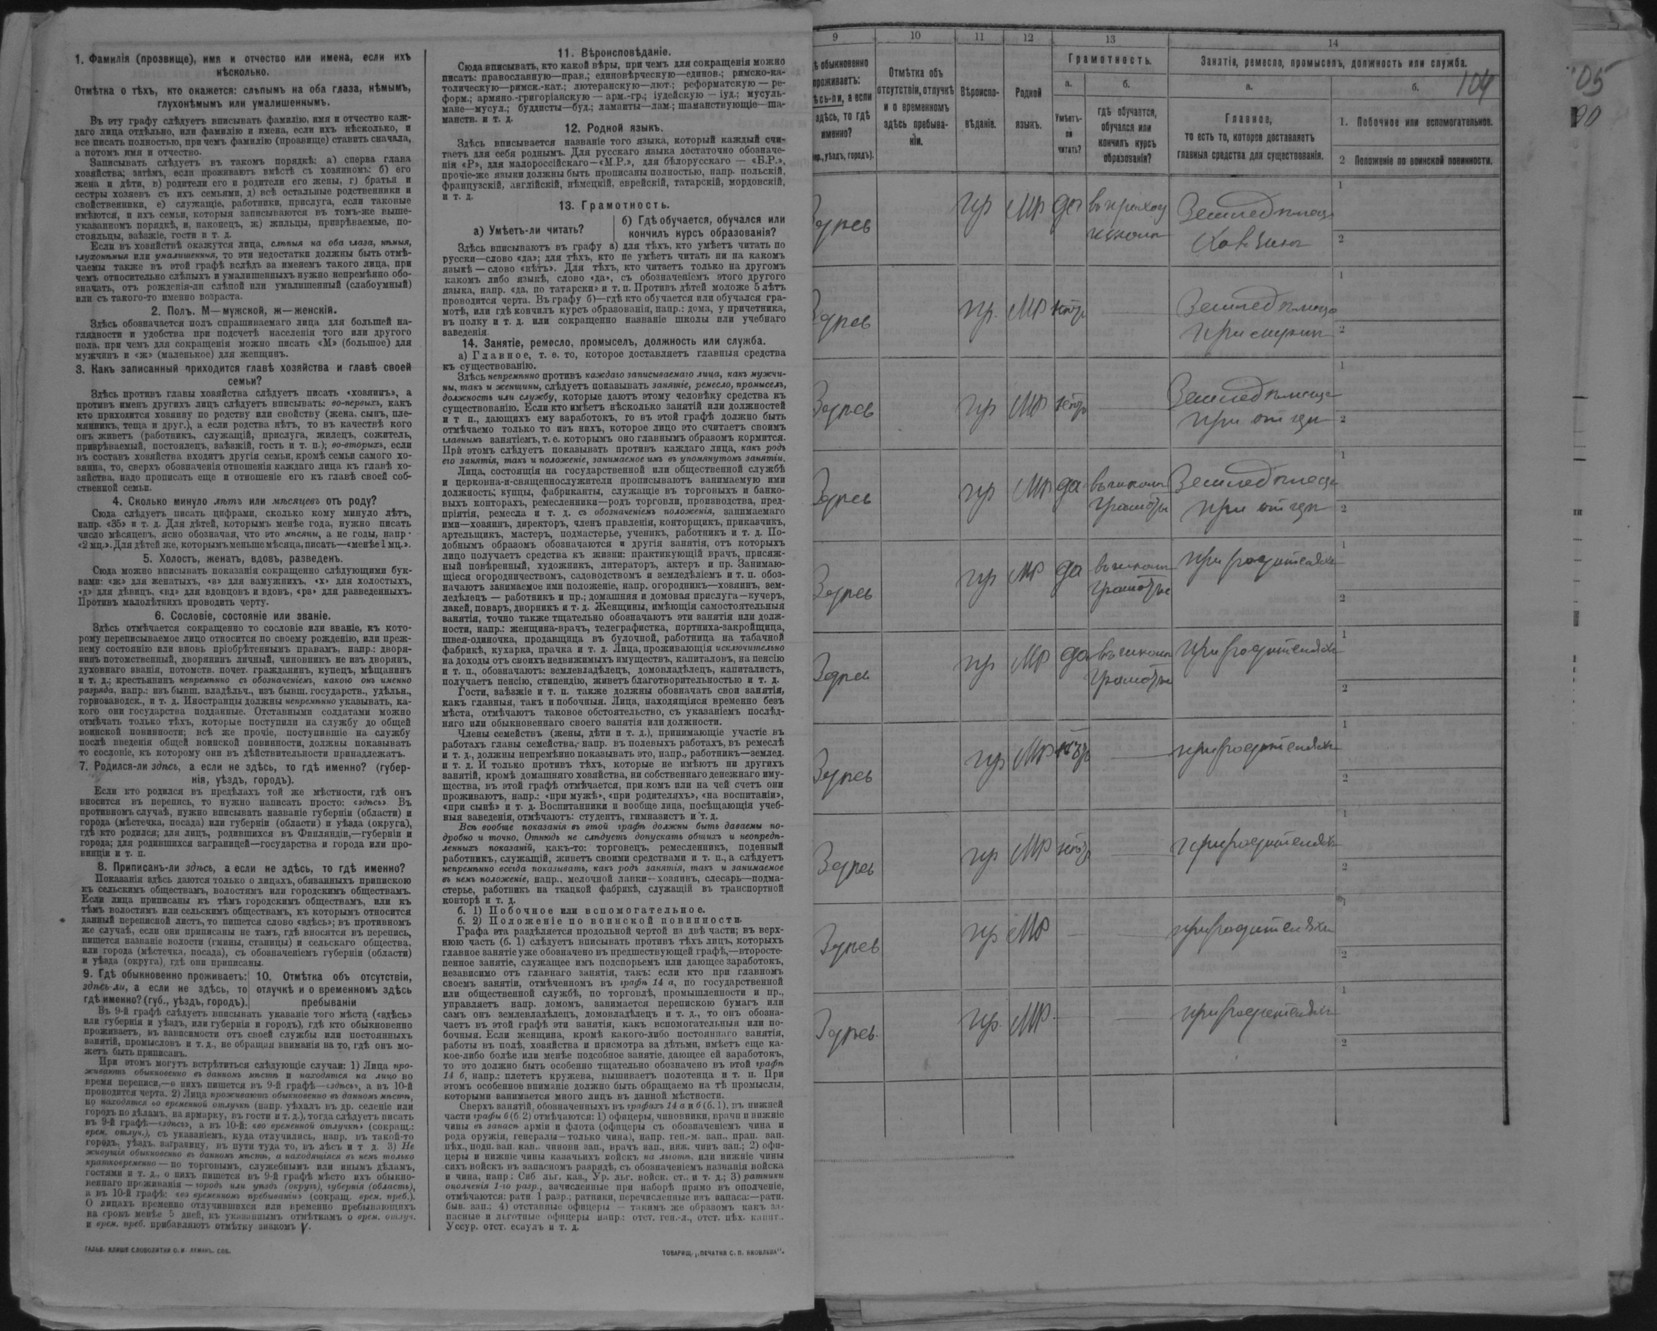 1. Фамилія (прозвище), имя и отчество или имена, если ихъ
нѣсколько.
Отмѣтка о тѣхъ, кто окажется: слѣпымъ на оба глаза, нѣмымъ,
глухонѣмымъ или умалишеннымъ.
Въ эту графу слѣдуетъ вписывать фамилію, имя и отчество каж-
даго лица отдѣльно, или фамилію и имена, если ихъ нѣсколько, и
все писать полностью, при чемъ фамилію (прозвище) ставить сначала,
а потомъ имя и отчество.
Записывать слѣдуетъ въ такомъ порядкѣ: а) сперва глава
хозяйства; затѣмъ, если проживаютъ вмѣстѣ съ хозяиномъ: б) его
жена и дѣти, в) родители его и родители его жены, г) братья и
сестры хозяевъ съ ихъ семьями, д) всѣ остальные родственники и
свойственники, е) служащіе, работники, прислуга, если таковые
имѣются, и ихъ семьи, которыя записываются въ томъ-же выше-
указанномъ порядкѣ, и, наконецъ, ж) жильцы, призрѣваемые, по-
стояльцы, заѣзжіе, гости и т. д.
Если въ хозяйствѣ окажутся лица, слѣпыя на оба глаза, нѣмыя,
глухонѣмыя или умалишенныя, то эти недостатки должны быть отмѣ-
чаемы также въ этой графѣ вслѣдъ за именемъ такого лица, при
чемъ относительно слѣпыхъ и умалишенныхъ нужно непремѣнно обо-
значать, отъ рожденія-ли слѣпой или умалишенный (слабоумный)
или съ такого-то именно возраста.
2. Полъ. М—мужской, ж—женскій.
Здѣсь обозначается полъ спрашиваемаго лица для большей на-
глядности и удобства при подсчетѣ населенія того или другого
пола, при чемъ для сокращенія можно писать «М» (большое) для
мужчинъ и «ж» (маленькое) для женщинъ.
3. Какъ записанный приходится главѣ хозяйства и главѣ своей
семьи?
Здѣсь противъ главы хозяйства слѣдуетъ писать «хозяинъ», а
противъ именъ другихъ лицъ слѣдуетъ вписывать: во-первыхъ, какъ
кто приходится хозяину по родству или свойству (жена, сынъ, пле-
мянникъ, теща и друг.), а если родства нѣтъ, то въ качествѣ кого
онъ живетъ (работникъ, служащій, прислуга, жилецъ, сожитель,
призрѣваемый, постоялецъ, заѣзжій, гость и т. п.); во-вторыхъ, если
въ составъ хозяйства входятъ другія семьи, кромѣ семьи самого хо-
зяина, то, сверхъ обозначенія отношенія каждаго лица къ главѣ хо-
зяйства, надо прописать еще и отношеніе его къ главѣ своей соб-
ственной семьи.
4. Сколько минуло лѣтъ или мѣсяцевъ отъ роду?
Сюда слѣдуетъ писать цифрами, сколько кому минуло лѣтъ,
напр. «35» и т. д. Для дѣтей, которымъ менѣе года, нужно писать
число мѣсяцевъ, ясно обозначая, что это мѣсяцы, а не годы, напр.
«2 мц.». Для дѣтей же, которымъ меньше мѣсяца, писать—«менѣе 1 мц.».
5. Холостъ, женатъ, вдовъ, разведенъ.
Сюда можно вписывать показанія сокращенно слѣдующими бук-
вами: «ж» для женатыхъ, «з» для замужнихъ, «х» для холостыхъ,
«д» для дѣвицъ, «вд» для вдовцовъ и вдовъ, «рз» для разведенныхъ.
Противъ малолѣтнихъ проводить черту.
6. Сословіе, состояніе или званіе.
Здѣсь отмѣчается сокращенно то сословіе или званіе, къ кото-
рому переписываемое лицо относится по своему рожденію, или преж-
нему состоянію или вновь пріобрѣтеннымъ правамъ, напр.: дворя-
нинъ потомственный, дворянинъ личный, чиновникъ не изъ дворянъ,
духовнаго званія, потомств. почет. гражданинъ, купецъ, мѣщанинъ
и т. д.; крестьянинъ непремѣнно съ обозначеніемъ, какого онъ именно
разряда, напр.: изъ бывш. владѣльч., изъ бывш. государств., удѣльн.,
горнозаводск., и т. д. Иностранцы должны непремѣнно указывать, ка-
кого они государства подданные. Отставными солдатами можно
отмѣчать только тѣхъ, которые поступили на службу до общей
воинской повинности; всѣ же прочіе, поступившіе на службу
послѣ введенія общей воинской повинности, должны показывать
то сословіе, къ которому они въ дѣйствительности принадлежатъ.
7. Родился-ли здѣсь, а если не здѣсь, то гдѣ именно? (губер-
нія, уѣздъ, городъ).
Если кто родился въ предѣлахъ той же мѣстности, гдѣ онъ
вносится въ перепись, то нужно написать просто: «здѣсь». Въ
противномъ случаѣ, нужно вписывать названіе губерніи (области) и
города (мѣстечка, посада) или губерніи (области) и уѣзда (округа),
гдѣ кто родился; для лицъ, родившихся въ Финляндіи,—губерніи и
города; для родившихся заграницей—государства и города или про-
винціи и т. п.
8. Приписанъ-ли здѣсь, а если не здѣсь, то гдѣ именно?
Показанія здѣсь даются только о лицахъ, обязанныхъ припискою
къ сельскимъ обществамъ, волостямъ или городскимъ обществамъ.
Если лица приписаны къ тѣмъ городскимъ обществамъ, или къ
тѣмъ волостямъ или сельскимъ обществамъ, къ которымъ относится
данный переписной листъ, то пишется слово «здѣсь»; въ противномъ
же случаѣ, если они приписаны не тамъ, гдѣ вносятся въ перепись,
пишется названіе волости (гмины, станицы) и сельскаго общества,
или города (мѣстечка, посада), съ обозначеніемъ губерніи (области)
и уѣзда (округа), гдѣ они приписаны.
9. Гдѣ обыкновенно проживаетъ:
здѣсь ли, а если не здѣсь, то
гдѣ именно? (губ., уѣздъ, городъ).
10. Отмѣтка объ отсутствіи,
отлучкѣ и о временномъ здѣсь
пребываніи
Въ 9-й графѣ слѣдуетъ вписывать указаніе того мѣста («здѣсь»
или губернія и уѣздъ, или губернія и городъ), гдѣ кто обыкновенно
проживаетъ, въ зависимости отъ своей службы или постоянныхъ
занятій, промысловъ и т. д., не обращая вниманія на то, гдѣ онъ мо-
жетъ быть приписанъ.
При этомъ могутъ встрѣтиться слѣдующіе случаи: 1) Лица про-
живаютъ обыкновенно въ данномъ мѣстѣ и находятся на лицо во
время переписи,—о нихъ пишется въ 9-й графѣ—«здѣсь», а въ 10-й
проводится черта. 2) Лица проживаютъ обыкновенно въ данномъ мѣстѣ,
но находятся во временной отлучкѣ (напр. уѣхалъ въ др. селеніе или
городъ по дѣламъ, на ярмарку, въ гости и т. д.), тогда слѣдуетъ писать
въ 9-й графѣ—«здѣсь», а въ 10-й: «во временной отлучкѣ» (сокращ.:
врем. отлуч.), съ указаніемъ, куда отлучились, напр. въ такой-то
городъ, уѣздъ, заграницу, въ пути туда то, въ лѣсъ и т. д. 3) Не
живущія обыкновенно въ данномъ мѣстѣ, а находящіяся въ немъ только
кратковременно — по торговымъ, служебнымъ или инымъ дѣламъ,
гостями и т. д., о нихъ пишется въ 9-й графѣ мѣсто ихъ обыкно-
веннаго проживанія — городъ или уѣздъ (округъ), губернія (область),
а въ 10-й графѣ: «во временномъ пребываніи» (сокращ. врем. преб.).
О лицахъ временно отлучившихся или временно пребывающихъ
на срокъ менѣе 5 дней, къ указаннымъ отмѣткамъ о врем. отлуч.
и врем. преб. прибавляютъ отмѣтку знакомъ V.
11. Вѣроисповѣданіе.
Сюда вписывать, кто какой вѣры, при чемъ для сокращенія можно
писать: православную—прав.; единовѣрческую—единов.; римско-ка-
толическую—римск.-кат.; лютеранскую—лют.; реформатскую — ре-
форм.; армяно-григоріанскую — арм.-гр.; іудейскую — іуд.; мусуль-
мане—мусул.; буддисты—буд.; ламаиты—лам.; шаманствующіе—ша-
манств. и т. д.
12. Родной языкъ.
Здѣсь вписывается названіе того языка, который каждый счи-
таетъ для себя роднымъ. Для русскаго языка достаточно обозначе-
нія «Р», для малороссійскаго—«М.Р.», для бѣлорусскаго — «Б.Р.»,
прочіе-же языки должны быть прописаны полностью, напр. польскій,
французскій, англійскій, нѣмецкій, еврейскій, татарскій, мордовскій,
и т. д.
13. Грамотность.
а) Умѣетъ-ли читать?
б) Гдѣ обучается, обучался или
кончилъ курсъ образованія?
Здѣсь вписываютъ въ графу а) для тѣхъ, кто умѣетъ читать по
русски—слово «да»; для тѣхъ, кто не умѣетъ читать ни на какомъ
языкѣ — слово «нѣтъ». Для тѣхъ, кто читаетъ только на другомъ
какомъ либо языкѣ, слово «да», съ обозначеніемъ этого другого
языка, напр. «да, по татарски» и т. п. Противъ дѣтей моложе 5 лѣтъ
проводится черта. Въ графу б)—гдѣ кто обучается или обучался гра-
мотѣ, или гдѣ кончилъ курсъ образованія, напр.: дома, у причетника,
въ полку и т. д. или сокращенно названіе школы или учебнаго
заведенія.
14. Занятіе, ремесло, промыселъ, должность или служба.
а) Главное, т. е. то, которое доставляетъ главныя средства
къ существованію.
Здѣсь непремѣнно противъ каждаго записываемаго лица, какъ мужчи-
ны, такъ и женщины, слѣдуетъ показывать занятіе, ремесло, промыселъ,
должность или службу, которые даютъ этому человѣку средства къ
существованію. Если кто имѣетъ нѣсколько занятій или должностей
и т п., дающихъ ему заработокъ, то въ этой графѣ должно быть
отмѣчаемо только то изъ нихъ, которое лицо это считаетъ своимъ
главнымъ занятіемъ, т. е. которымъ оно главнымъ образомъ кормится.
При этомъ слѣдуетъ показывать противъ каждаго лица, какъ родъ
его занятія, такъ и положеніе, занимаемое имъ въ упомянутомъ занятіи.
Лица, состоящія на государственной или общественной службѣ
и церковно-и-священнослужители прописываютъ занимаемую ими
должность; купцы, фабриканты, служащіе въ торговыхъ и банко-
выхъ конторахъ, ремесленники—родъ торговли, производства, пред-
пріятія, ремесла и т. д. съ обозначеніемъ положенія, занимаемаго
ими—хозяинъ, директоръ, членъ правленія, конторщикъ, приказчикъ,
артельщикъ, мастеръ, подмастерье, ученикъ, работникъ и т. д. По-
добнымъ образомъ обозначаются и другія занятія, отъ которыхъ
лицо получаетъ средства къ жизни: практикующій врачъ, присяж-
ный повѣренный, художникъ, литераторъ, актеръ и пр. Занимаю-
щіеся огородничествомъ, садоводствомъ и земледѣліемъ и т. п. обоз-
начаютъ занимаемое ими положеніе, напр. огородникъ—хозяинъ, зем-
ледѣлецъ — работникъ и пр.; домашняя и домовая прислуга—кучеръ,
лакей, поваръ, дворникъ и т. д. Женщины, имѣющія самостоятельныя
занятія, точно также тщательно обозначаютъ эти занятія или долж-
ности, напр.: женщина-врачъ, телеграфистка, портниха-закройщица,
швея-одиночка, продавщица въ булочной, работница на табачной
фабрикѣ, кухарка, прачка и т. д. Лица, проживающія исключительно
на доходы отъ своихъ недвижимыхъ имуществъ, капиталовъ, на пенсію
и т. п., обозначаютъ: землевладѣлецъ, домовладѣлецъ, капиталистъ,
получаетъ пенсію, стипендію, живетъ благотворительностью и т. д.
Гости, заѣзжіе и т. п. также должны обозначать свои занятія,
какъ главныя, такъ и побочныя. Лица, находящіяся временно безъ
мѣста, отмѣчаютъ таковое обстоятельство, съ указаніемъ послѣд-
няго или обыкновеннаго своего занятія или должности.
Члены семействъ (жены, дѣти и т. д.), принимающіе участіе въ
работахъ главы семейства, напр. въ полевыхъ работахъ, въ ремеслѣ
и т. д., должны непремѣнно показывать это, напр., работникъ—землед.
и т. д. И только противъ тѣхъ, которые не имѣютъ ни другихъ
занятій, кромѣ домашняго хозяйства, ни собственнаго денежнаго иму-
щества, въ этой графѣ отмѣчается, при комъ или на чей счетъ они
проживаютъ, напр.: «при мужѣ», «при родителяхъ», «на воспитаніи»,
«при сынѣ» и т. д. Воспитанники и вообще лица, посѣщающія учеб-
ныя заведенія, отмѣчаютъ: студентъ, гимназистъ и т. д.
Всѣ вообще показанія въ этой графѣ должны быть даваемы по-
дробно и точно. Отнюдь не слѣдуетъ допускать общихъ и неопредѣ-
ленныхъ показаній, какъ-то: торговецъ, ремесленникъ, поденный
работникъ, служащій, живетъ своими средствами и т. п., а слѣдуетъ
непремѣнно всегда показывать, какъ родъ занятія, такъ и занимаемое
въ немъ положеніе, напр., мелочной лавки—хозяинъ, слесарь—подма-
стерье, работникъ на ткацкой фабрикѣ, служащій въ транспортной
конторѣ и т. д.
б. 1) Побочное или вспомогательное.
б. 2) Положеніе по воинской повинности.
Графа эта раздѣляется продольной чертой на двѣ части; въ верх-
нюю часть (б. 1) слѣдуетъ вписывать противъ тѣхъ лицъ, которыхъ
главное занятіе уже обозначено въ предшествующей графѣ,—второсте-
пенное занятіе, служащее имъ подспорьемъ или дающее заработокъ,
независимо отъ главнаго занятія, такъ: если кто при главномъ
своемъ занятіи, отмѣченномъ въ графѣ 14 а, по государственной
или общественной службѣ, по торговлѣ, промышленности и пр.,
управляетъ напр. домомъ, занимается перепискою бумагъ или
самъ онъ землевладѣлецъ, домовладѣлецъ и т. д., то онъ обозна-
чаетъ въ этой графѣ эти занятія, какъ вспомогательныя или по-
бочныя. Если женщина, кромѣ какого-либо постояннаго занятія,
работы въ полѣ, хозяйства и присмотра за дѣтьми, имѣетъ еще ка-
кое-либо болѣе или менѣе подсобное занятіе, дающее ей заработокъ,
то это должно быть особенно тщательно обозначено въ этой графѣ
14 б, напр.: плететъ кружева, вышиваетъ полотенца и т. п. При
этомъ особенное вниманіе должно быть обращаемо на тѣ промыслы,
которыми занимается много лицъ въ данной мѣстности.
Сверхъ занятій, обозначенныхъ въ графахъ 14 а и б (б. 1), въ нижней
части графы б (б. 2) отмѣчаются: 1) офицеры, чиновники, врачи и нижніе
чины въ запасѣ арміи и флота (офицеры съ обозначеніемъ чина и
рода оружія, генералы—только чина), напр. ген.-м. зап., прап. зап.
пѣх., подп. зап. кав., чиновн. зап., врачъ зап., ниж. чинъ зап.; 2) офи-
церы и нижніе чины казачьихъ войскъ на льготѣ, или нижніе чины
сихъ войскъ въ запасномъ разрядѣ, съ обозначеніемъ названія войска
и чина, напр: Сиб льг. каз., Ур. льг. войск. ст.. и т. д.; 3) ратники
ополченія 1-го разр., зачисленные при наборѣ прямо въ ополченіе,
отмѣчаются: ратн. 1 разр.; ратники, перечисленные изъ запаса:—ратн.
быв. зап.; 4) отставные офицеры — такимъ же образомъ какъ за-
пасные и льготные офицеры напр.: отст. ген.-л., отст. пѣх. капит.,
Уссур. отст. есаулъ и т. д.
ТОВАРИЩ. „ПЕЧАТНЯ С. П. ЯКОВЛЕВА".
9 10 11 12 13 14
обыкновенно
проживаетъ:
а если
здѣсь, то гдѣ
именно?
уѣздъ, городъ).
Отмѣтка объ
отсутствіи, отлучкѣ
и о временномъ
здѣсь пребыва-
ніи.
Вѣроиспо-
вѣданіе.
Родной
языкъ.
Грамотность.
а. б.
Умѣетъ-
ли
читать?
гдѣ обучается,
обучался или
кончилъ курсъ
образованія?
Занятіе, ремесло, промыселъ, должность или служба.
а. б. 104
Главное,
то есть то, которое доставляетъ
главныя средства для существованія.
1. Побочное или вспомогательное.
2 Положеніе по воинской повинности.
05
90
Здѣсь пр МР да въ приход Земледѣлецъ 1
школѣ Хозяинъ 2
Здѣсь пр. МР нѣтъ Земледѣлица 1
при мужѣ 2
Здѣсь пр МР нѣтъ Земледѣлица 1
при отцѣ 2
Здѣсь пр МР да въ школѣ Земледѣлецъ 1
грамоты при отцѣ 2
Здѣсь пр МР да въ школѣ при родителяхъ 1
грамоты 2
Здѣсь пр МР да въ школѣ при родителяхъ 1
грамоты 2
Здѣсь пр МР нѣтъ при родителяхъ 1
2
Здѣсь пр МР нѣтъ при родителяхъ 1
2
Здѣсь пр МР при родителяхъ 1
2
Здѣсь пр. МР при родителяхъ 1
2